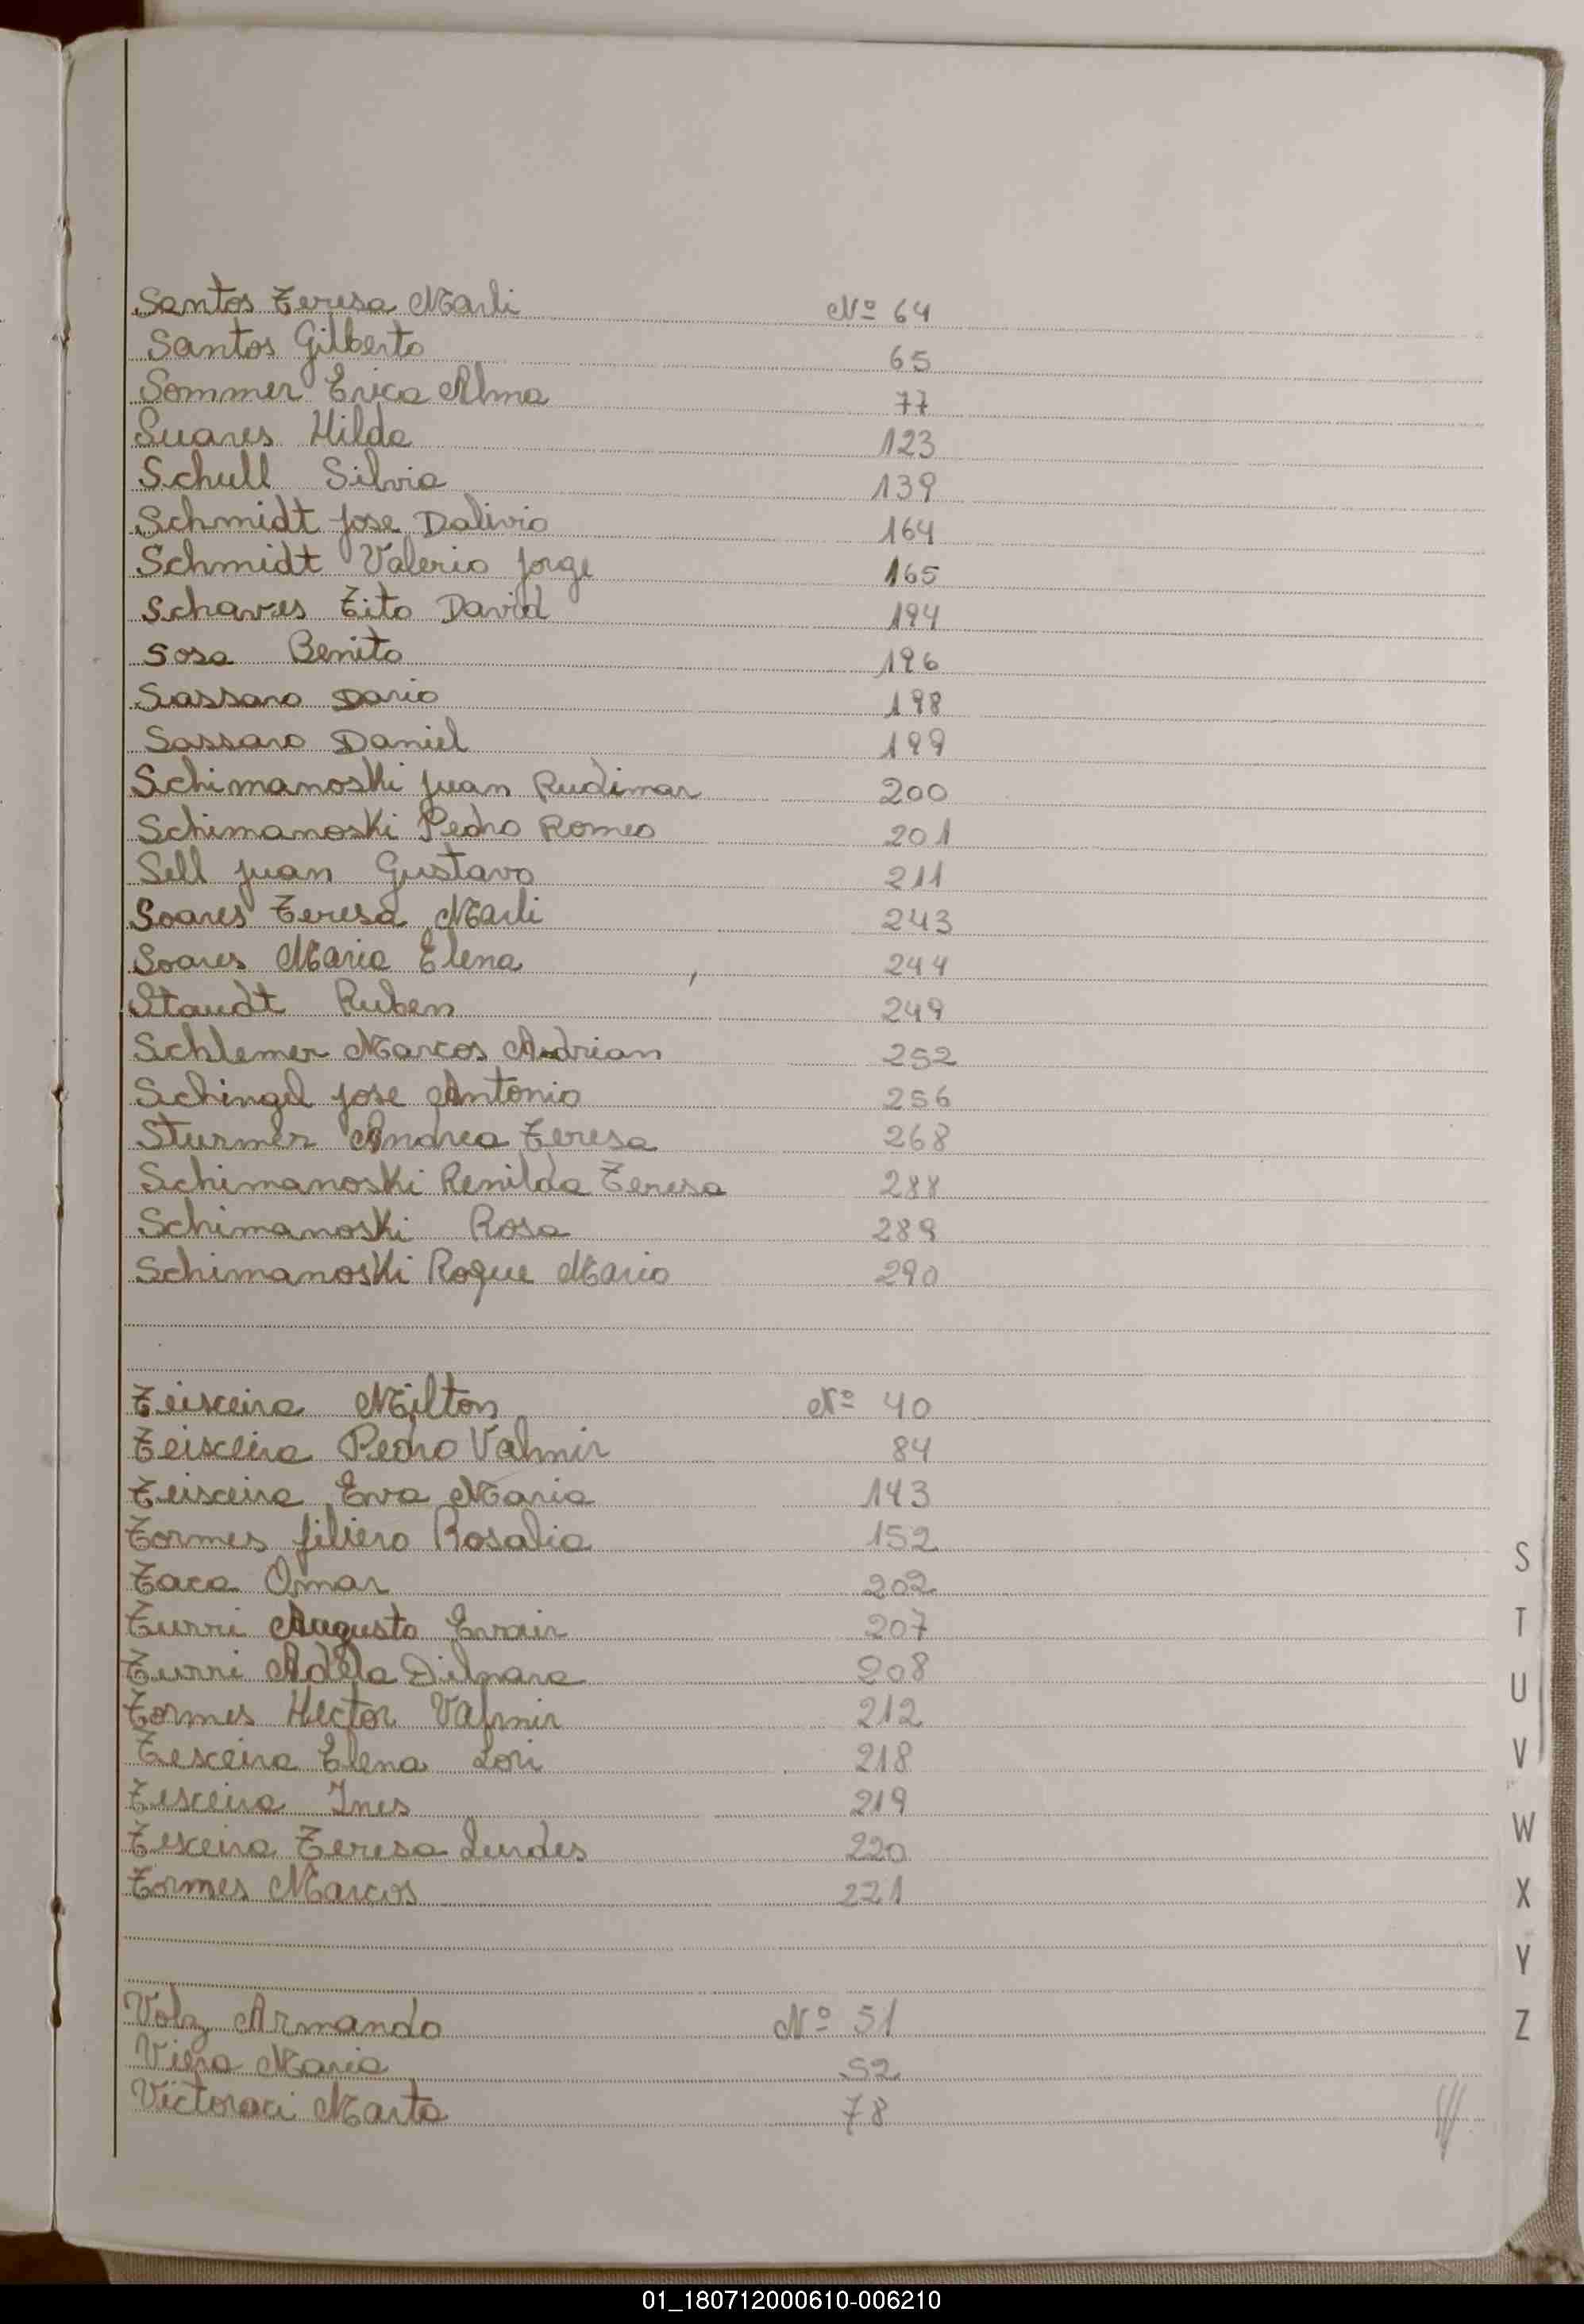 Santos Teresa Marli Nº 64
Santos Gilberto 65
Sommer Erica Alma 77
Suares Hilda 123
Schull Silvia 139
Schmidt Jose Dalivio 164
Schmidt Valerio Jorge 165
Schaves Tito David 194
Sosa Benito 196
Sassaro Dario 198
Sassaro Daniel 199
Schimanoski Juan Rudimar 200
Schimanoski Pedro Romeo 201
Sell Juan Gustavo 211
Soares Teresa Marli 243
Soares Maria Elena 244
Staudt Ruben 249
Schlemer Marcos Andrian 252
Schingel Jose Antonio 256
Sturmer Andrea Teresa 268
Schimanoski Renilda Teresa 288
Schimanoski Rosa 289
Schimanoski Roque Mario 290
Teixeira Milton Nº 40
Teixeira Pedro Valmir 84
Teixeira Eva Maria 143
Tormes Rosalia 152
Taca Omar 202
Turri Augusto 207
Turri Adela Dilmara 208
Tormes Hector Valmir 212
Texeira Elena Lori 218
Texeira Ines 219
Texeira Teresa Lurdes 220
Tormes Marcos 221
Volz Armando Nº 51
Viera Maria 52
Victoraci Marta 78
S
T
U
V
W
X
Y
Z
01_180712000610-006210